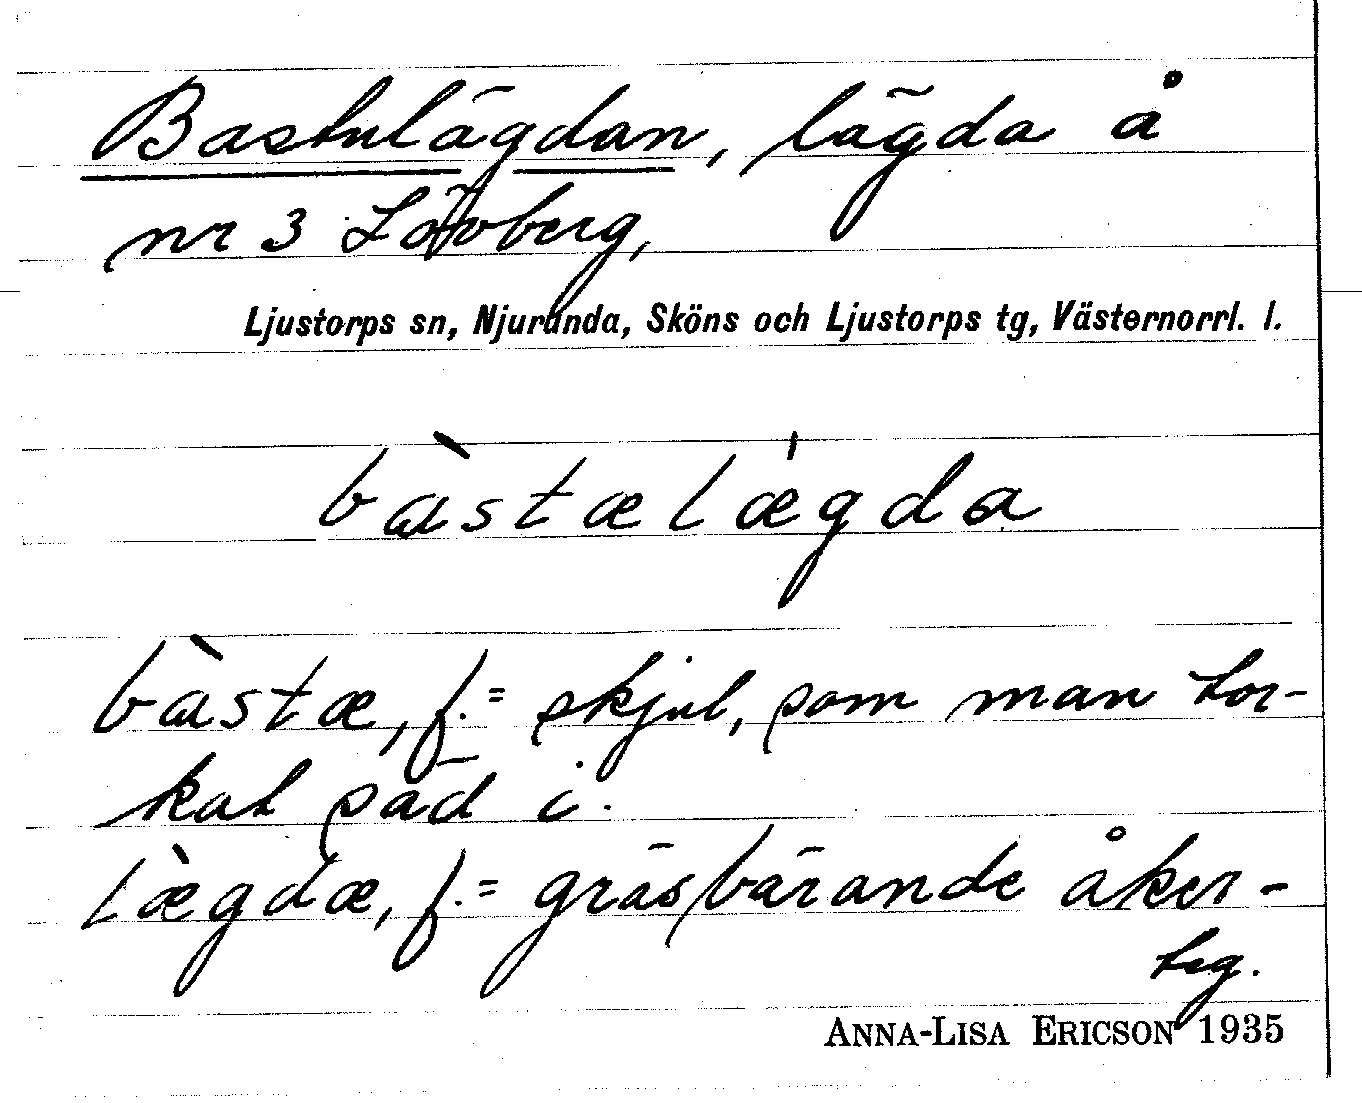 Bastulägdan, lägda å
nr 3 Lövberg,
Ljustorps sn, Njurunda, Sköns och Ljustorps tg, Västernorrl. l.
bàstælǽgda
bàstæ, f. = skjul, som man tor-
kat säd i.
læ̀gdæ, f. = gräsbärande åker-
teg.
ANNA-LISA ERICSON 1935